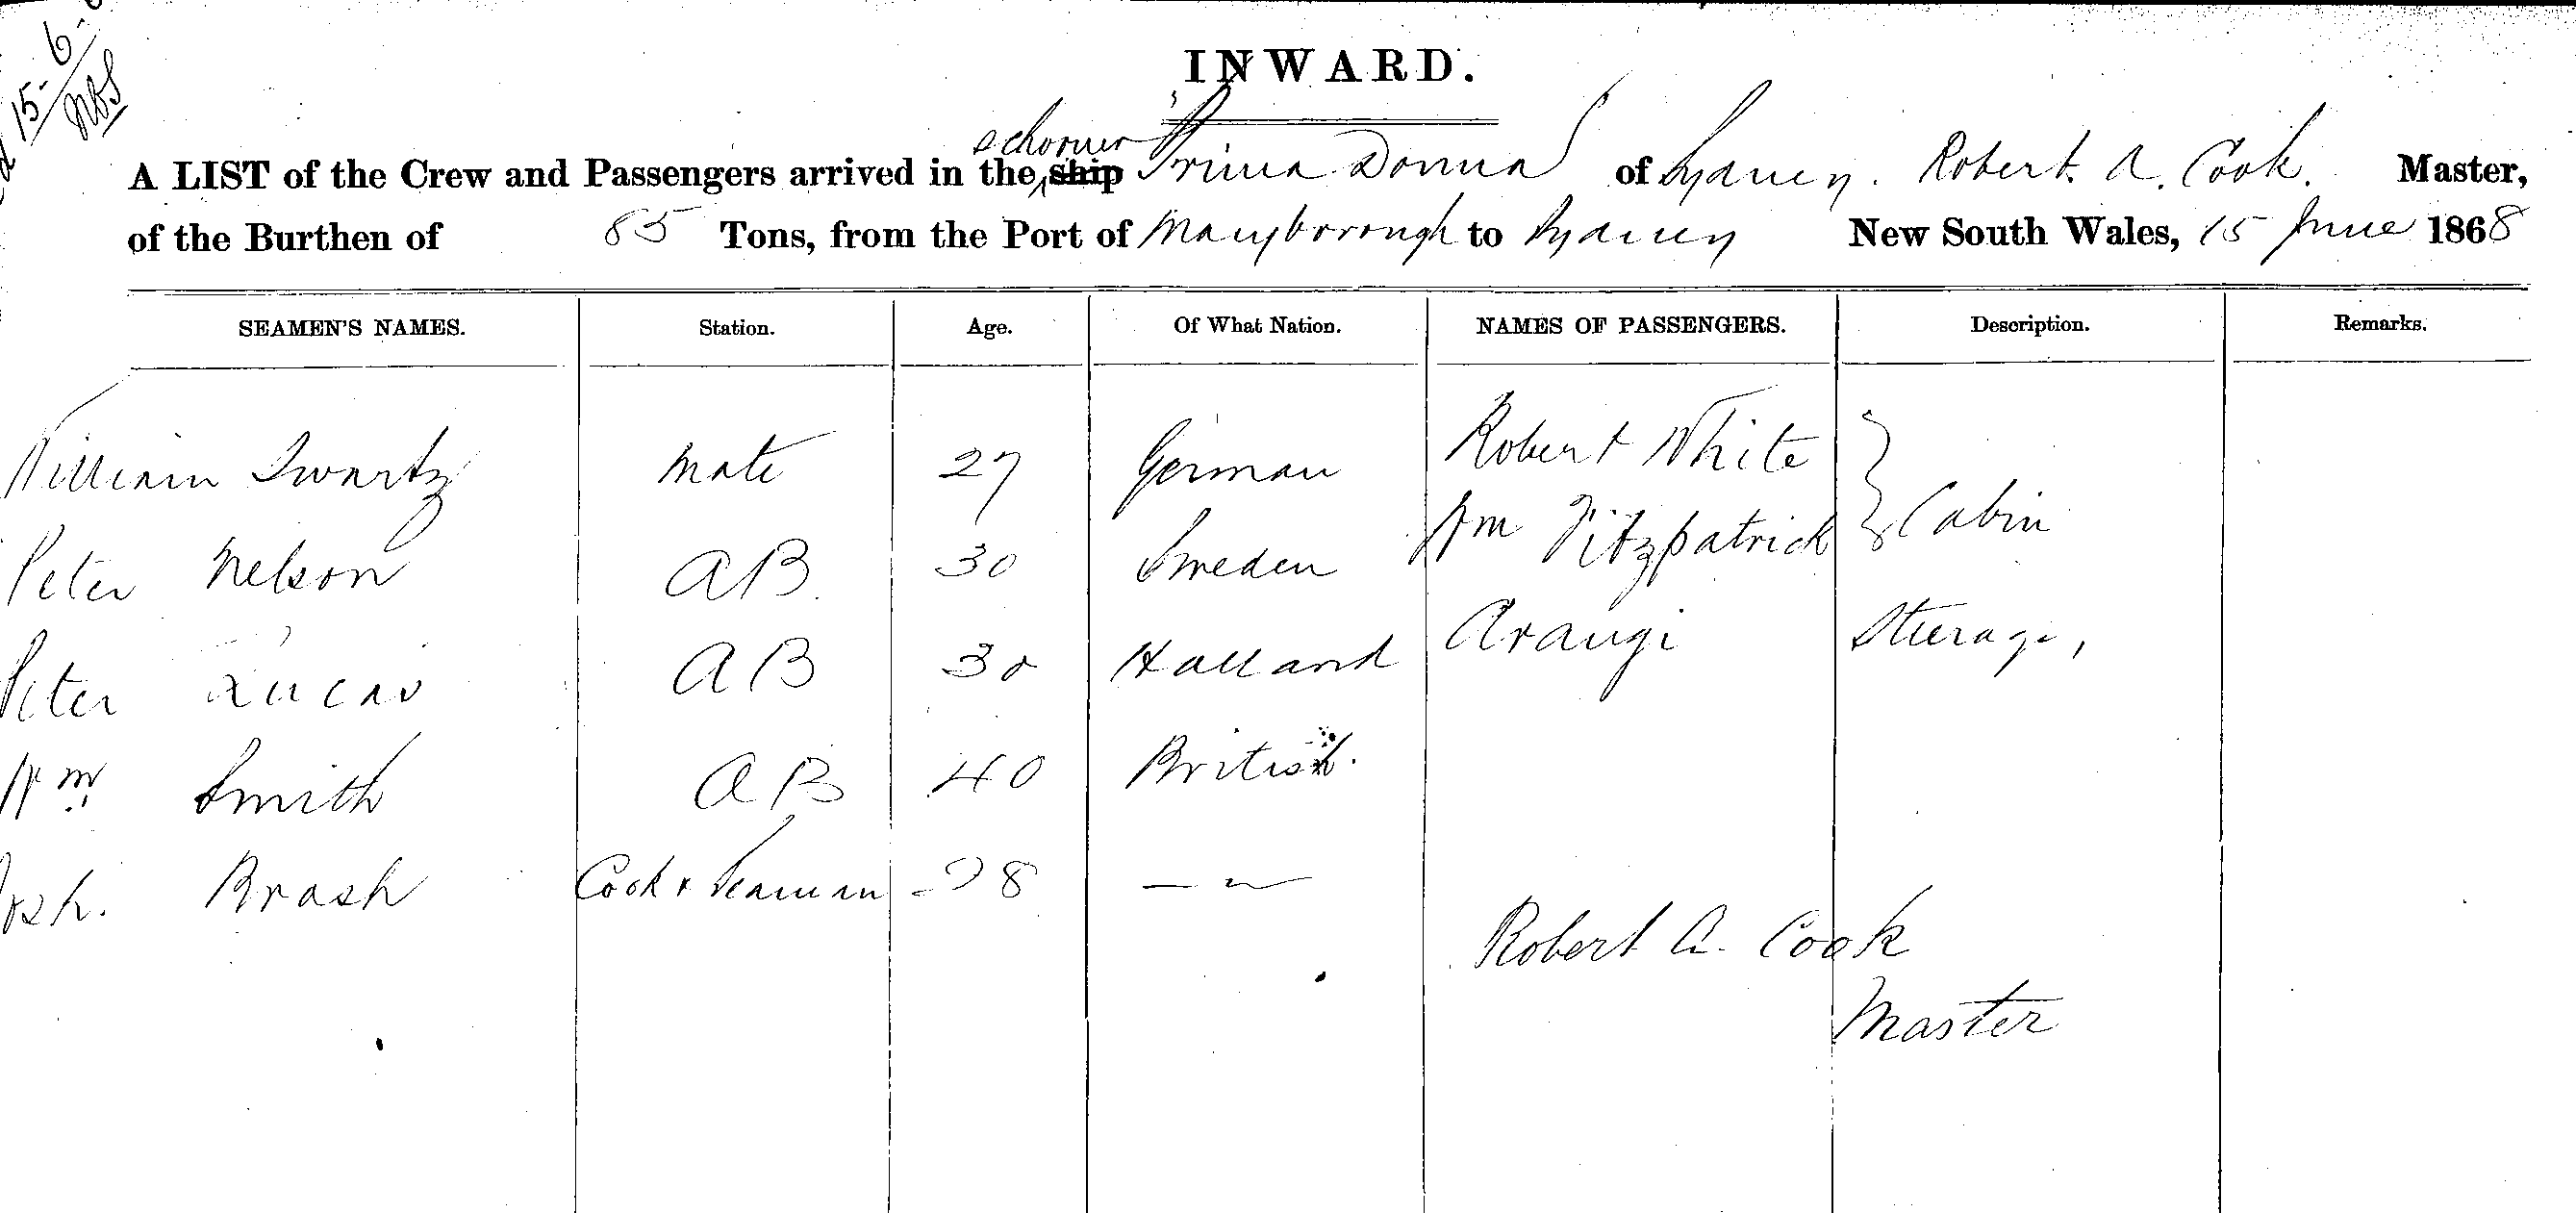 15-6-
INWARD.
schooner
A LIST of the Crew and Passengers arrived in the ship Prima Donna of Sydney. Robert. A. Cook. Master,
of the Burthen of 85 Tons, from the Port of Maryborough to Sydney New South Wales, 15 June 1868
SEAMEN'S NAMES. Station. Age. Of What Nation. NAMES OF PASSENGERS. Description. Remarks.
William Swartz Mate 27 German Robert White
Wm Fitzpatrick Cabin
Peter Nelson AB. 30 Sweden
Peter Lucas AB 30 Holland Arangi Steerage,
Wm Smith AB 40 British.
Brash Cook & Seaman 28 — " —
Robert A. Cook
Master